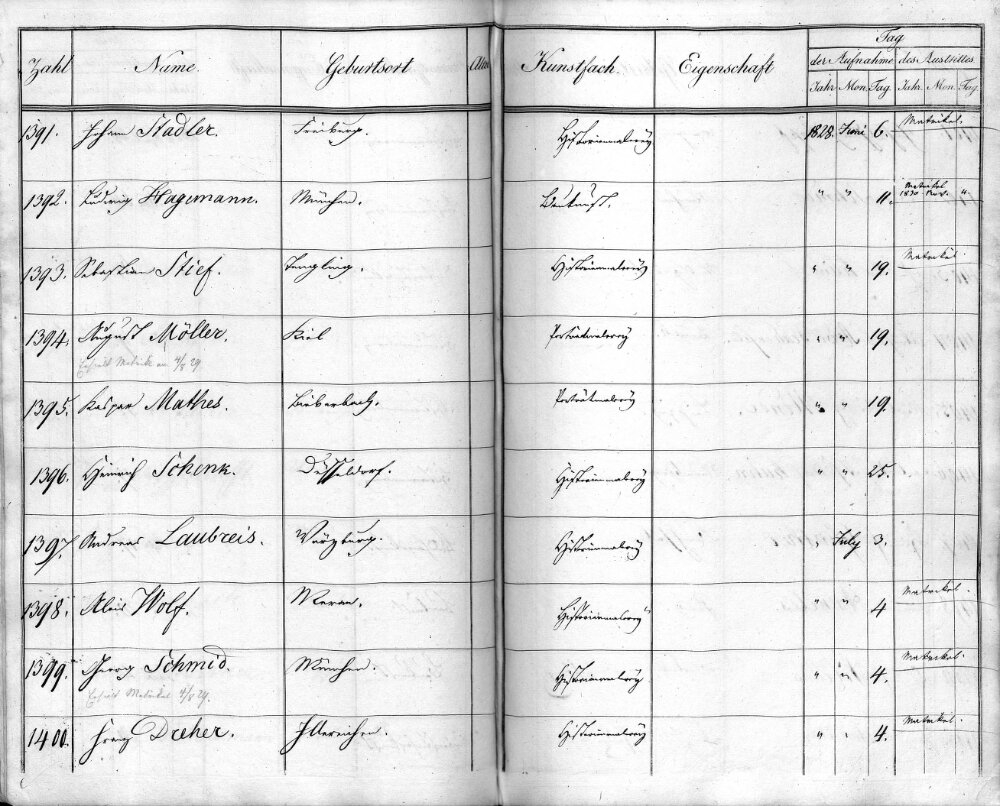 Tag
Zahl Name. Geburtsort Alter Kunstfach. Eigenschaft der Aufnahme des Austrittes
Jahr Mon. Tag Jahr. Mon. Tag.
1391. Johann Stadler. Freiburg. Historienmalerey 1828. Juni 6. Matrikel.
1392. Ludwig Hagemann. München. Baukunst. " " 11. Matrikel
1830. Nov. "
1393. Sebastian Stief. Tengling. Historienmalerey " " 19. Matrikel.
1394. August Möller. Kiel Porträtmalerey " " 19.
Erhielt Matrik am 4/8 29.
1395. Kaspar Mathes. Porträtmalerey " " 19.
1396. Heinrich Schenk. Düsseldorf. Historienmalerey " " 25.
1397. Andreas Laubreis. Würzburg. Historienmalerey " July 3.
1398. Alois Wolf. Meran. Historienmalerey " " 4 Matrikel.
1399. Georg Schmid. München. Historienmalerey " " 4. Matrikel.
Erhielt Matrikel 4/8 29.
1400. Franz Dreher. Illereichen. Historienmalerey " " 4. Matrikel.